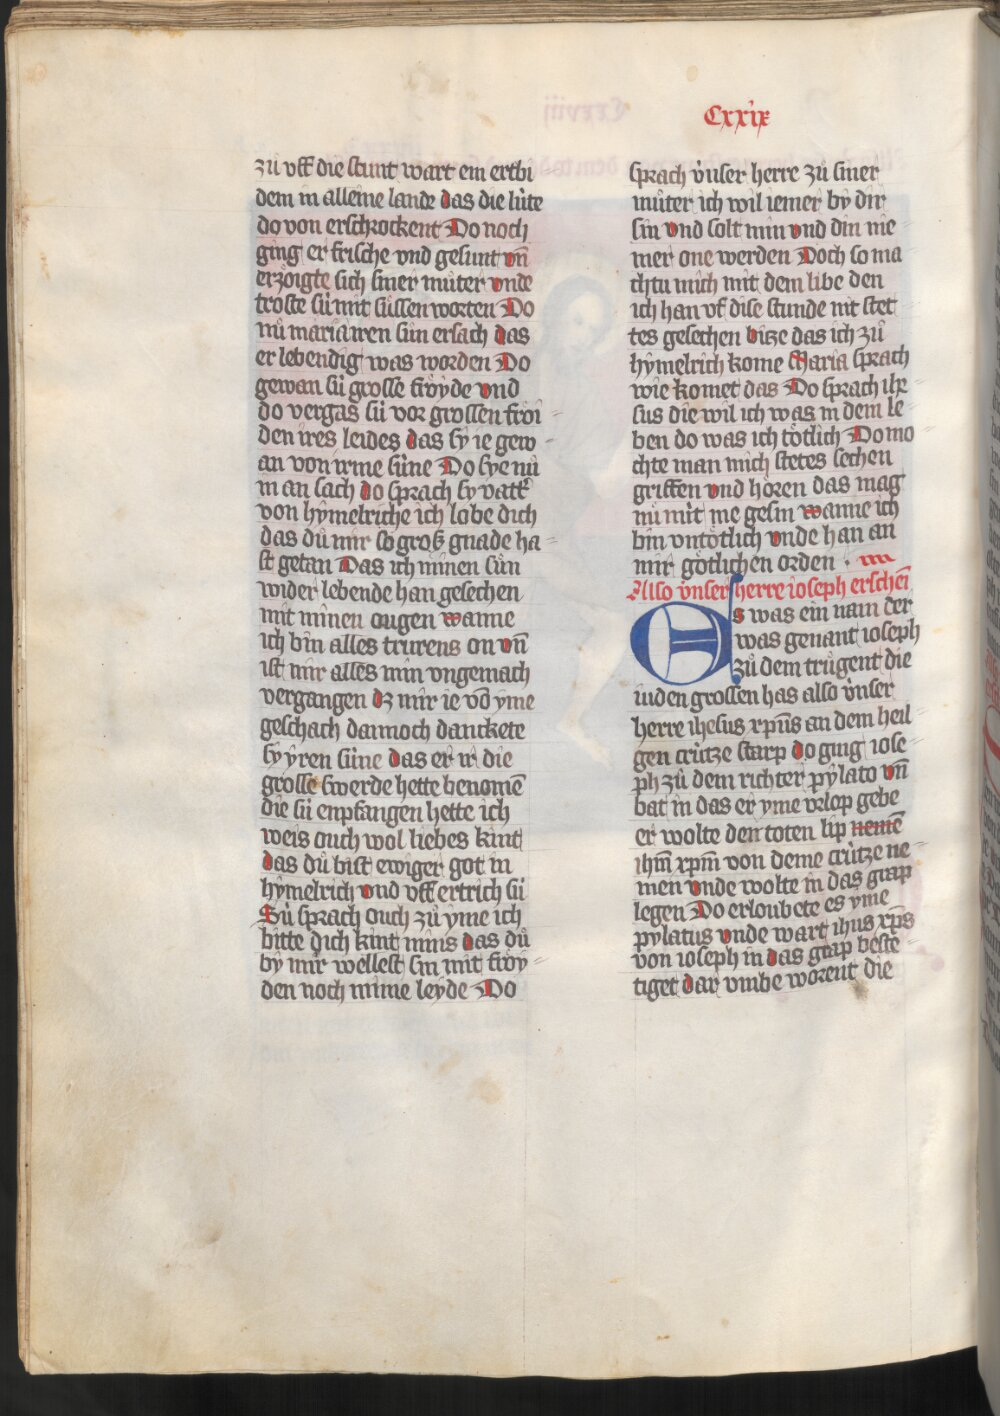 Cxxix
zů vff die stunt wart ein ertbi
dem in alleine lande das die lúte
do von erschrockent Do noch
ging er frische vnd gesunt vn̄
erzögte sich siner můter vnde
troste sú mit sússen worten Do
nů maria iren sun ersach das
er lebendig was worden Do
gewan sú grosse fröyde vnd
do vergas sú vor grossen fröi
den ires leides das sy ie gew
an von irme sůne Do sye nů
in an sach do sprach sy vatt̓
von hymelriche ich lobe dich
das dů mir so groß gnade ha
st getan Das ich minen sůn
wider lebende han gesechen
mit minen ougen wanne
ich bin alles trurens on vn̄
ist mir alles min vngemach
vergangen dz mir ie vō yme
geschach darnoch danckete
sy yren sůne das er ir die
grosse swerde hette benomē
die sú enpfangen hette ich
weis ouch wol liebes kint
das dů bist ewiger got in
hymelrich vnd vff ertrich si
Sú sprach ouch zů yme ich
bitte dich kint minis das dů
by mir wellest sin mit fröy
den noch mime leyde Do
sprach vnser herre zů siner
můter ich wil iemer by dir
sin vnd solt min vnd din nie
mer one werden Doch so ma
chtu mich mit dem libe den
ich han vf dise stunde nit stet
tes gesechen bisze das ich zů
hymelrich kome Maria sprach
wie komet das Do sprach ihe
sus die wil ich was in dem le
ben do was ich tötlich Do mo
chte man mich stetes sechen
griffen vnd hören das mag
nů nit me gesin wanne ich
bin vntötlich vnde han an
mir götlichen orden
Also vnser herre ioseph erschē
Es was ein nam der
was genant ioseph
zů dem trůgent die
iuden grossen has also vnser
herre ihesus xp̄us an dem heil
gen crútze starp do ging iose
ph zů dem richter pylato vn̄
bat in das er yme vrlop gebe
er wolte den toten lip nemē
ihm̄ xpm̄ von deme crútze ne
men vnde wolte in das grap
legen Do erloubete es yme
pylatus vnde wart ihus xp̄s
von ioseph in das grap beste
tiget dar vmbe worent die